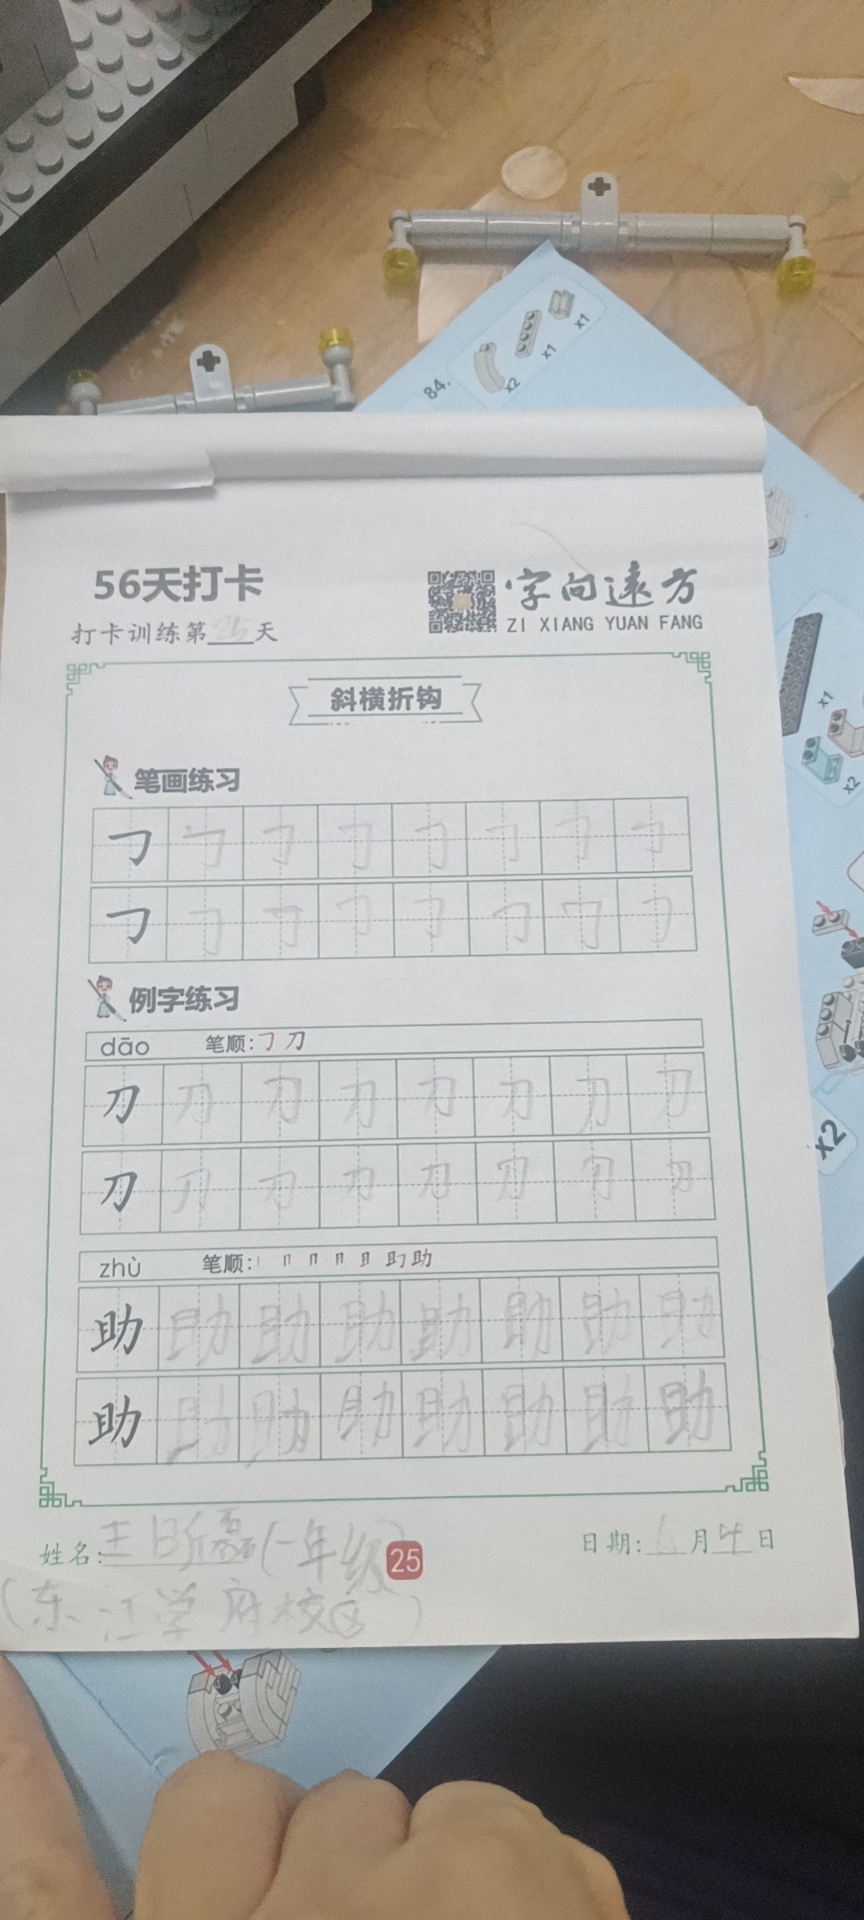 84.
x2
x1
x1
56天打卡
字向远方
打卡训练第25天
ZI XIANG YUAN FANG
斜横折钩
x1
x2
笔画练习
㇆ ㇆ ㇆ ㇆ ㇆ ㇆ ㇆ ㇆
㇆ ㇆ ㇆ ㇆ ㇆ ㇆ ㇆ ㇆
例字练习
dāo 笔顺:㇆ 刀
刀 刀 刀 刀 刀 刀 刀 刀
刀 刀 刀 刀 刀 刀 刀 刀
x2
zhù 笔顺:丨 冂 月 助
助 助 助 助 助 助 助 助
助 助 助 助 助 助 助 助
姓名:王昕磊(一年级) 25 日期:6月4日
(东江学府校区)